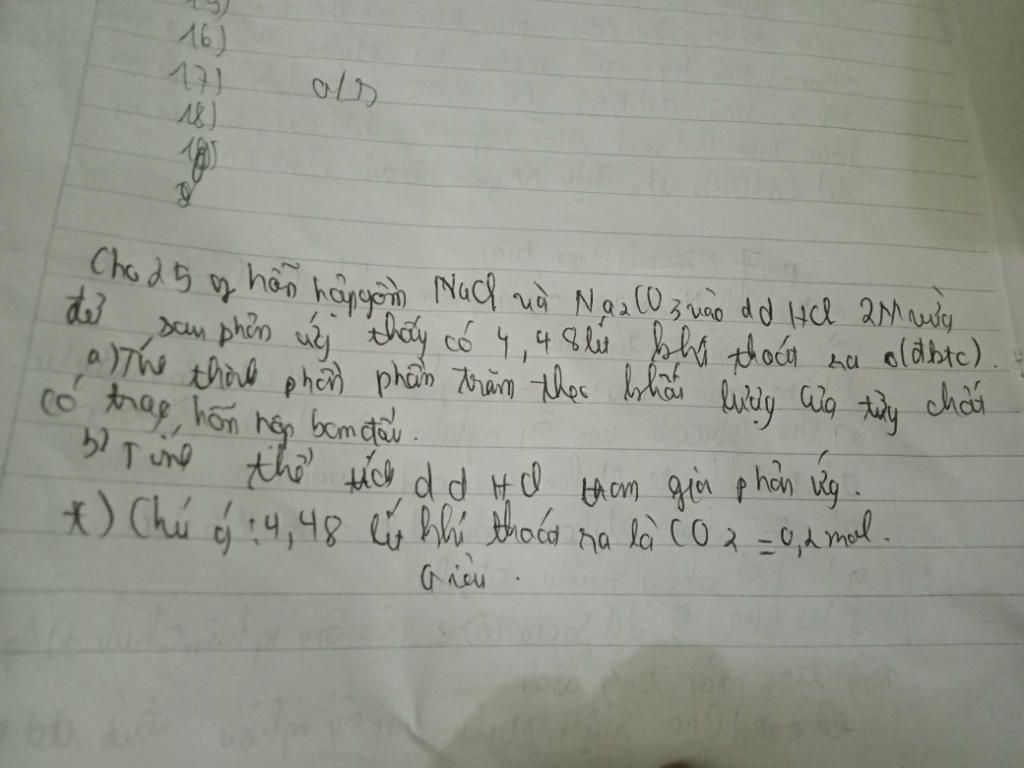 15)
16)
17)
18)
Cho 25 g hỗn hợp gồm NaCl và Na2CO3 vào dd HCl 2M vừa
đủ sau phản ứng thấy có 4,48 lít khí thoát ra (đktc).
a) Tính thành phần phần trăm theo khối lượng của từng chất
có trong hỗn hợp ban đầu.
b) Tính thể tích dd HCl tham gia phản ứng.
*) Chú ý : 4,48 lít khí thoát ra là CO2 = 0,2 mol.
Giải.